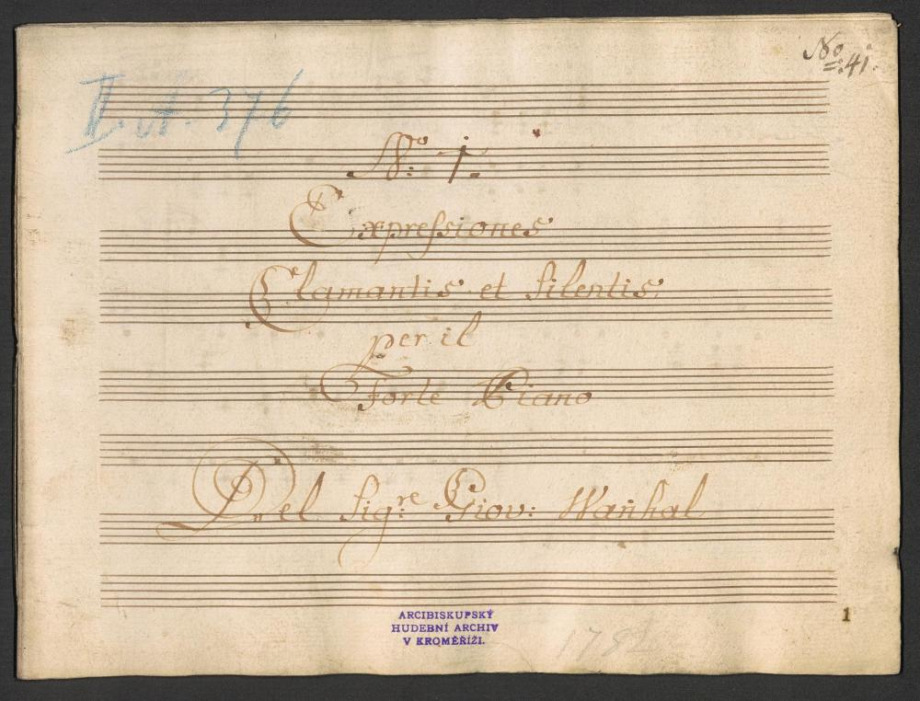 No: 41.
II. A. 376
No: 1.
Expressiones
Clamantis et silentis.
per il
Forte Piano
Del Sig:re Giov: Wanhal
ARCIBISKUPSKÝ
HUDEBNÍ ARCHIV
V KROMĚŘÍŽI.
1